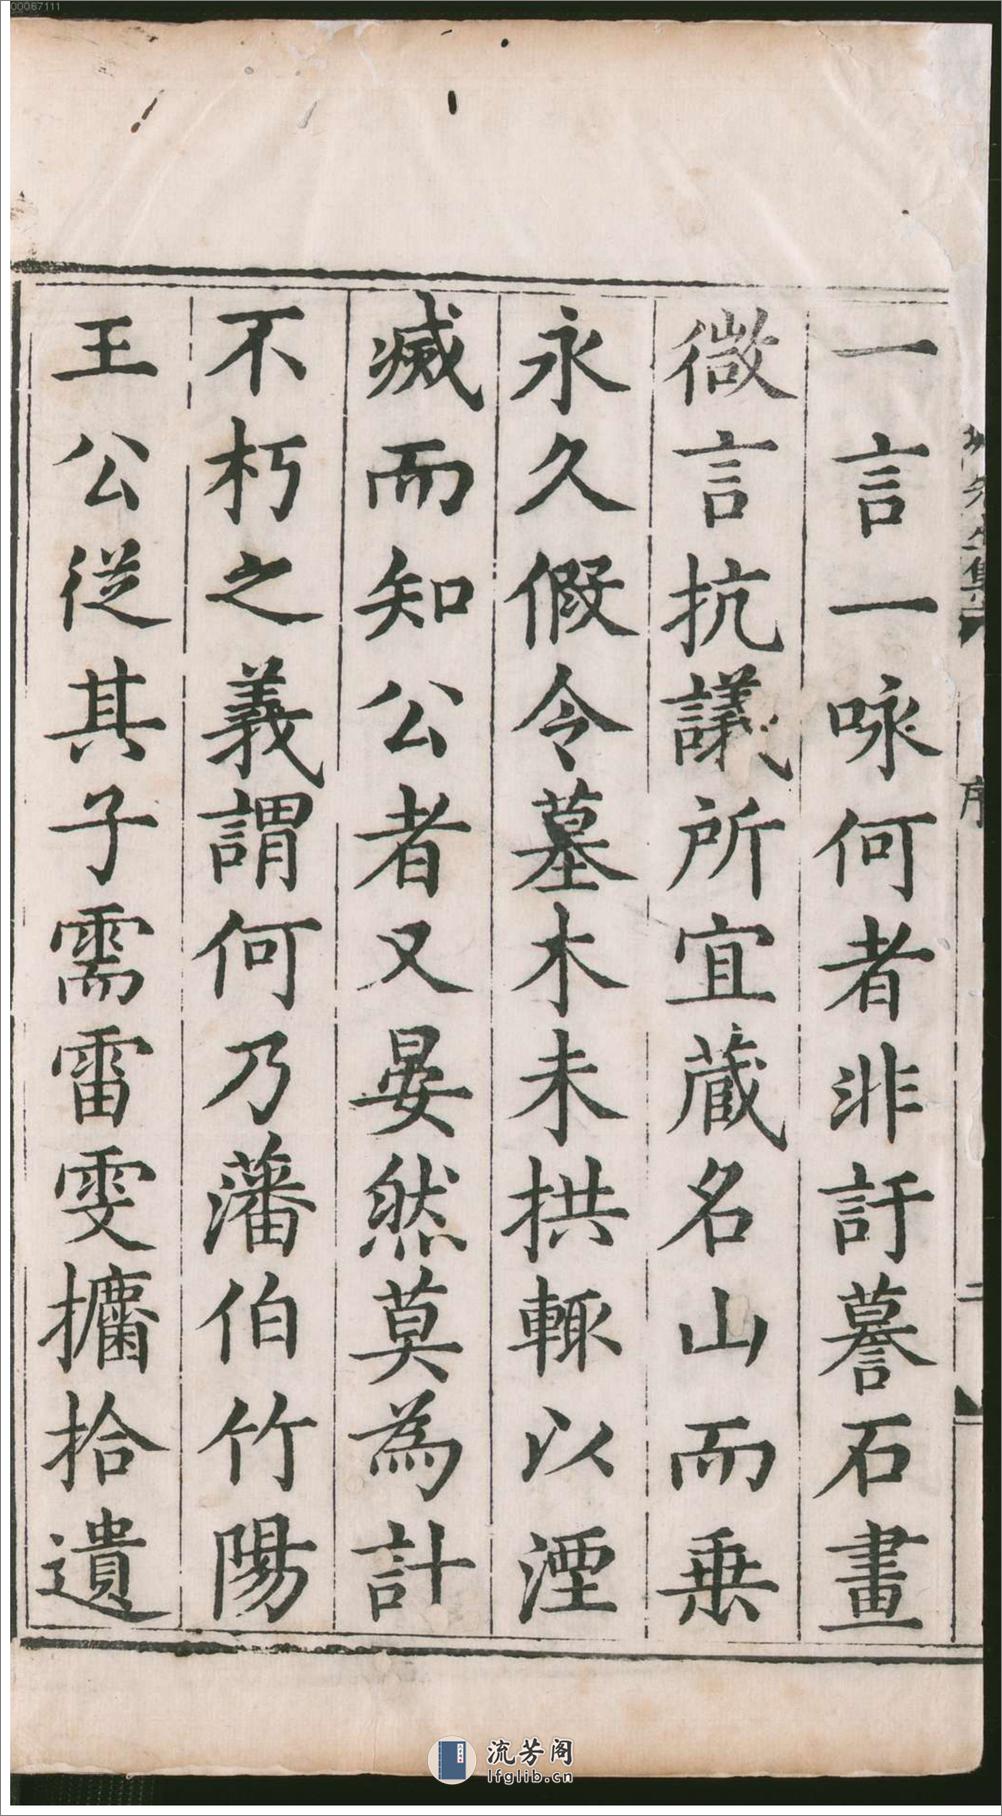 00067111
一言一咏何者非訏謩石畫
微言抗議所宜蔵名山而乗
永久假令墓木未拱輙以湮
滅而知公者又晏然莫為計
不朽之義謂何乃藩伯竹陽
王公從其子需雷雯攟拾遺
先生集
序
二
流芳阁
lfglib.cn